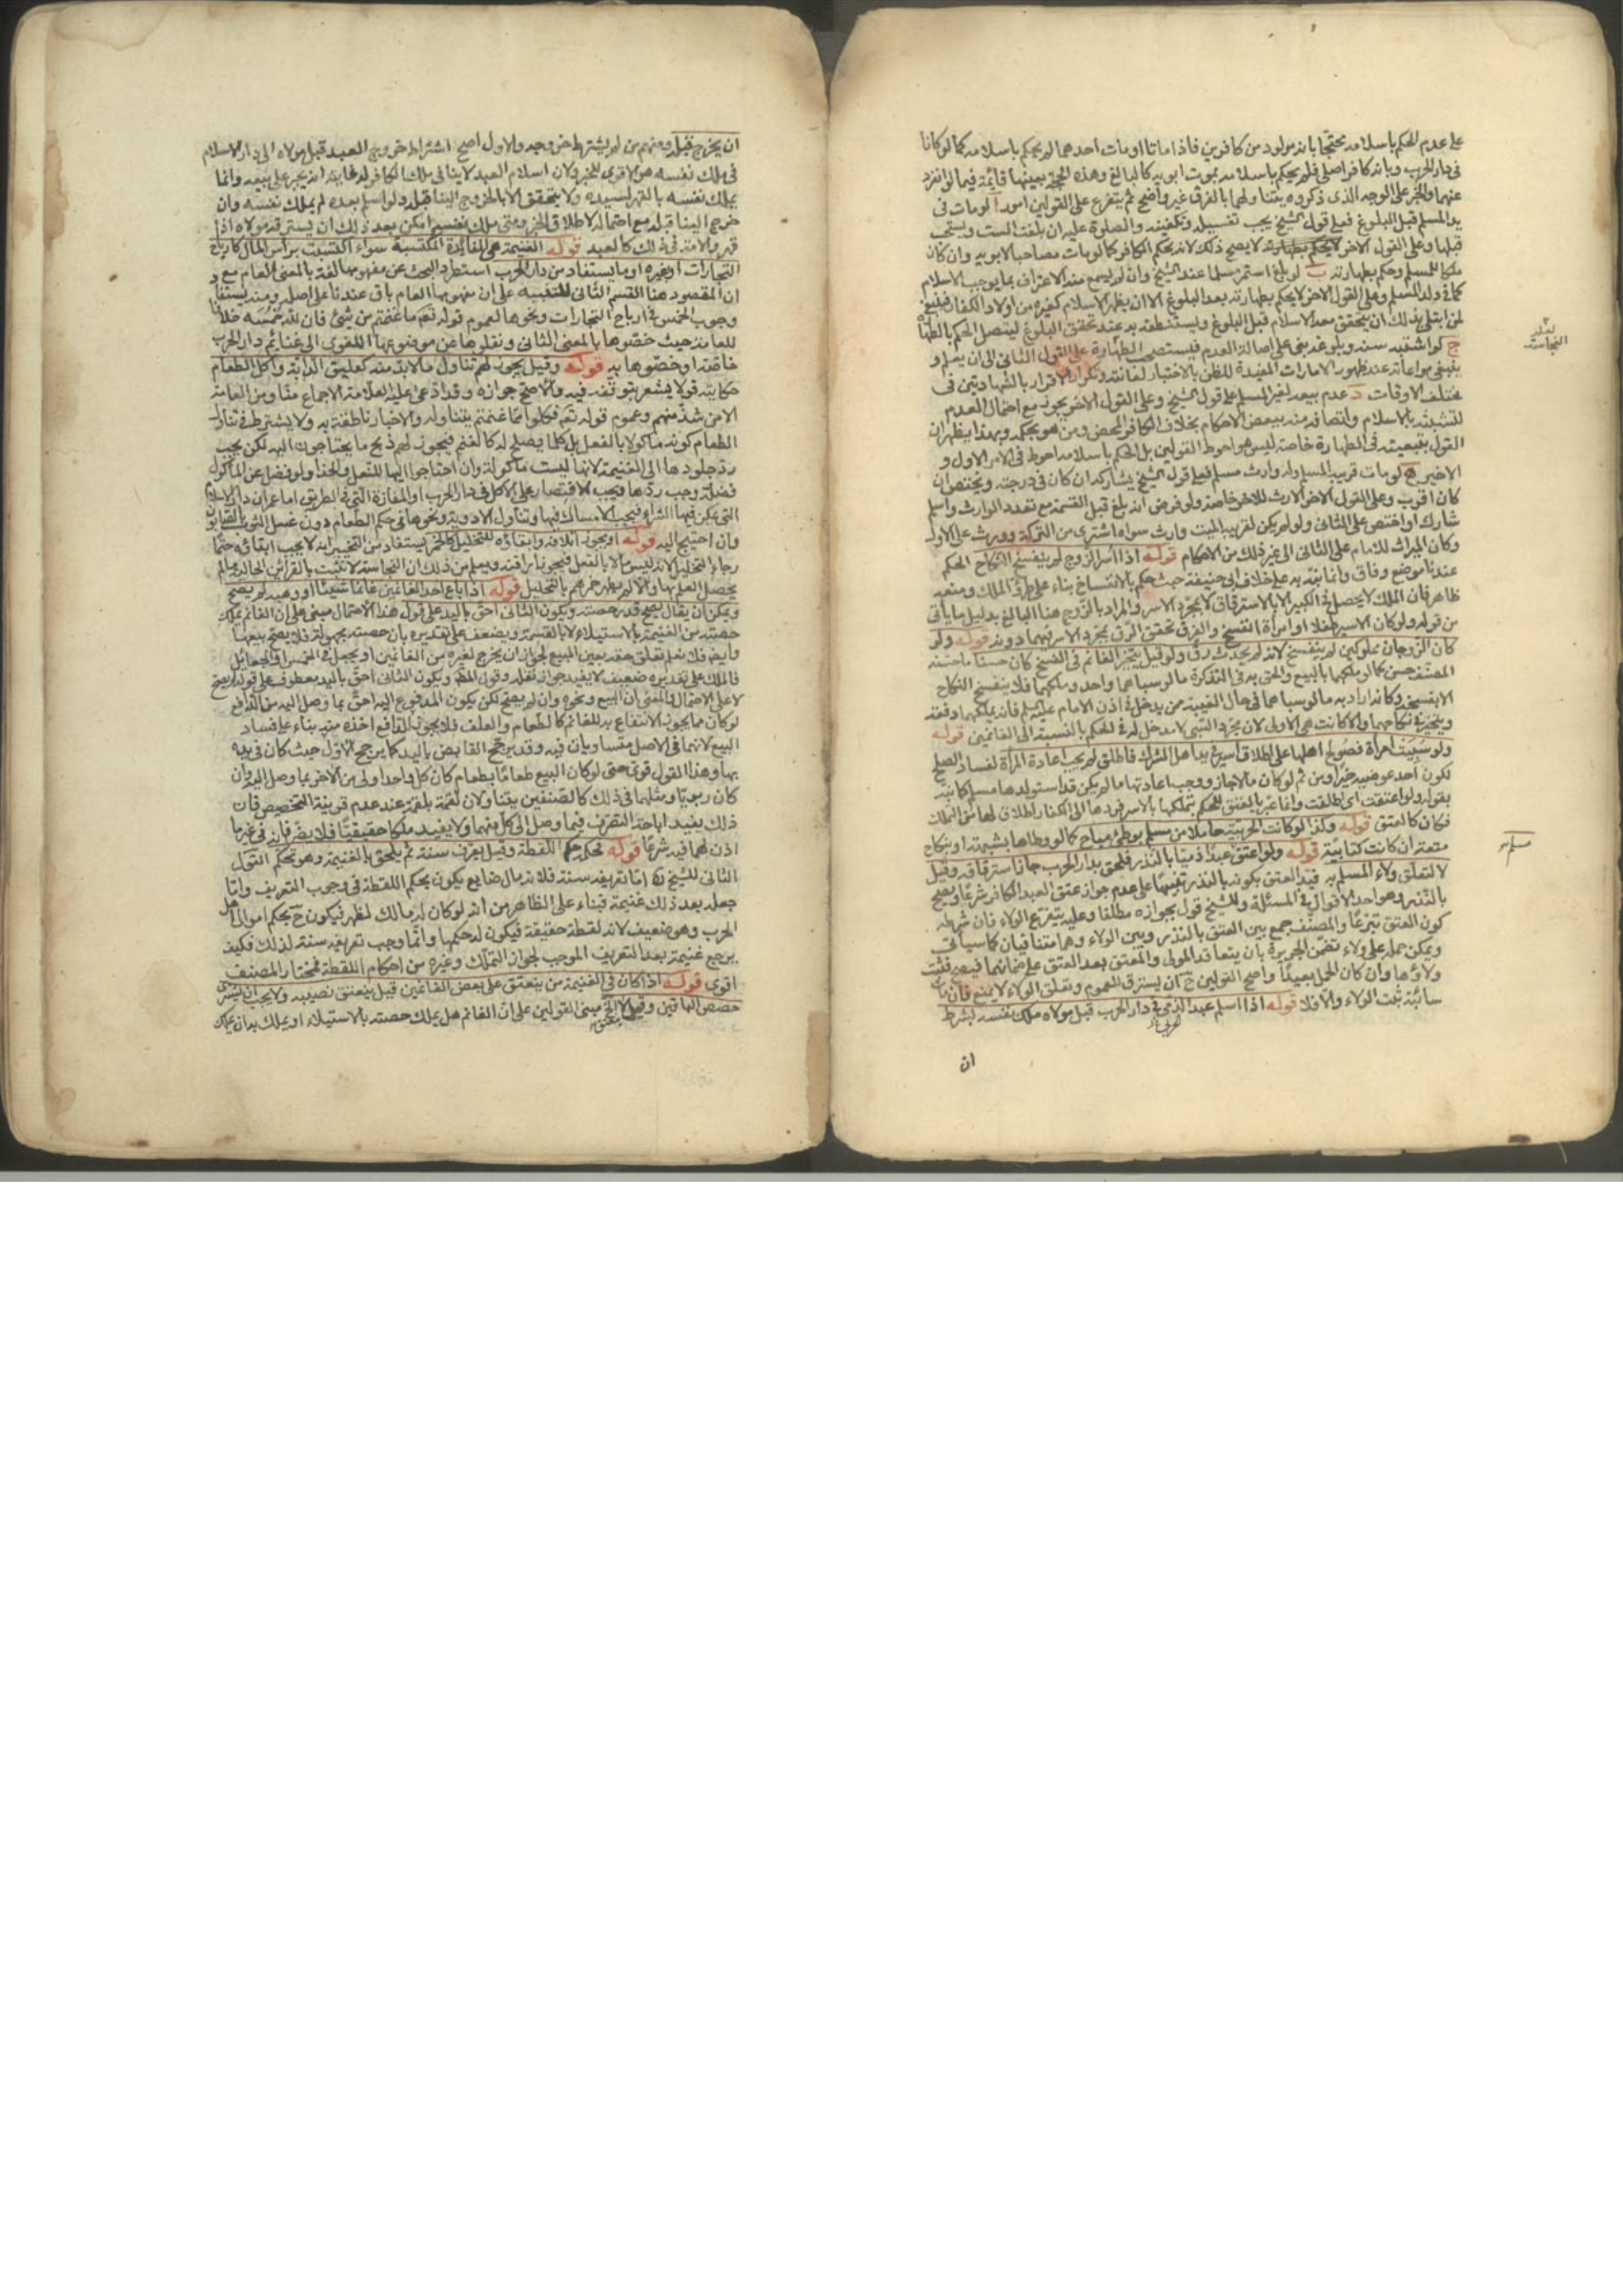 على عدم الحكم باسلامه محتجا بانه مولود من كافرين فاذا ماتا او مات احدهما لم يحكم باسلامه كما لو كانا
فى دار الحرب وبانه كافر اصلى فلم يحكم باسلامه بموت ابويه كالبالغ وهذه الحجة بعينها قائمة فيما لو انفرد
عنهما والخبر على الوجه الذى ذكروه يتناولهما بالفرق غير واضح ثم يتفرع على القولين امور ا لو مات فى
يد المسلم قبل البلوغ فعلى قول الشيخ يجب تغسيله وتكفينه والصلوة عليه ان بلغت الست ويستحب
قبلها وعلى القول الاخر لا يصح ذلك لانه بحكم الكافر كما لو مات مصاحبا لابويه وان كان
ملكا للمسلم وحكم بطهارته ب لو بلغ استمر مسلما عند الشيخ وان لم يسمع منه الاعتراف بما يوجب الاسلام
كما فى ولد المسلم وعلى القول الاخر لا يحكم بطهارته بعد البلوغ الا ان يظهر الاسلام كغيره من اولاد الكفار فينبغى
لمن ابتلى بذلك ان يتحقق معه الاسلام قبل البلوغ وليستنطقه به عند تحقق البلوغ ليتصل الحكم بالطهارة
ج لو اشتبه سنه وبلوغه بنى على اصالة العدم فيستصحب الطهارة على القول الثانى الى ان يعلم و
ينبغى مراعاته عند ظهور الامارات المفيدة للظن بالاختبار لعانته وتكرار الاقرار بالشهادتين فى
مختلف الاوقات د عدم بيعه لغير المسلم على قول الشيخ وعلى القول الاخر يجوز مع احتمال العدم
لتشبثه بالاسلام واتصافه منه ببعض الاحكام بخلاف الكافر المحض ومن هو بحكمه وبهذا يظهر ان
القول بتبعيته فى الطهارة خاصة ليس هو احوط القولين بل الحكم باسلامه احوط فى الامر الاول و
الاخير ه لو مات قريبه المسلم وله وارث مسلم فعلى قول الشيخ يشاركه ان كان فى درجته ويختص ان
كان اقرب وعلى القول الاخر الارث للاخر خاصة ولو فرض انه بلغ قبل القسمة مع تعدد الوارث واسلم
شارك او اختص على الثانى ولو لم يكن لقريبه الميت وارث سواه اشترى من التركة وورث على الاول
وكان الميراث للامام على الثانى الى غير ذلك من الاحكام قوله اذا اسر الزوج لم ينفسخ النكاح الحكم
عندنا موضع وفاق وانما نبه به على خلاف ابى حنيفة حيث حكم بالانفساخ بناء على طرو الملك ومنعه
ظاهر فان الملك لا يحصل فى الكبير الا بالاسترقاق لا بمجرد الاسر والمراد بالزوج هنا البالغ بدليل ما ياتى
من قوله ولو كان الاسير طفلا او امراة انفسخ والفرق تحقق الرق بمجرد الاسر فيهما دونه قوله ولو
كان الزوجان مملوكين لم ينفسخ لانه لم يحدث رق ولو قيل بتخير الغانم فى الفسخ كان حسنا ما حسنه
المصنف حسن كما لو ملكهما بالبيع والحق به فى التذكرة ما لو سباهما واحد وملكهما فلا ينفسخ النكاح
الا بفسخه وكانه اراد به ما لو سباهما فى حال الغيبة من يدخل فى اذن الامام عليه السلم فانه يملكهما دفعة
ويتخير فى نكاحهما والا كانت هى الاولى لان مجرد السبى لا مدخل له فى الحكم بالنسبة الى الغانمين قوله
ولو سبيت امراة فصولح اهلها على اطلاق اسير فى يد اهل الشرك فاطلق لم يجب اعادة المراة لفساد الصلح
لكون احد عوضيه حرا ومن ثم لو كان مالا جاز ووجب اعادتها ما لم يكن قد استولدها مسلم كما نبه
بقوله ولو اعتقت اى اطلقت وانما عبر بالعتق للحكم بتملكها بالاسر فردها الى الكفار اطلاق لها من الملك
فكان كالعتق قوله وكذا لو كانت الحربية حاملا من مسلم بوطئ مباح كما لو وطاها بشبهة او بنكاح
متعة ان كانت كتابية قوله ولو اعتق عبدا ذميا بالنذر فلحق بدار الحرب جاز استرقاقه وقيل
لا لتعلق ولاء المسلم به قيد العتق بكونه بالنذر تنبيها على عدم جواز عتق العبد الكافر شرعا ويصح
بالنذر وهو احد الاقوال فى المسئلة وللشيخ قول بجوازه مطلقا وعليه يتفرع الولاء فان شرطه
كون العتق تبرعا والمصنف جمع بين العتق بالنذر وبين الولاء وهما متنافيان كما سياتى
ويمكن حمله على ولاء تضمن الجريرة بان يتعاقد المولى والمعتق بعد العتق على ضمانهما فيصح فيثبت
ولاؤها وان كان الحمل بعيدا واصح القولين ح ان يسترق للعموم وتعلق الولاء لا يمنع فان
سائبة ثبت الولاء والا فلا قوله اذا اسلم عبد الذمى فى دار الحرب قبل مولاه ملك نفسه بشرط
الحربى
ان
النجاسة
مسلم
ان يخرج قبله ومنهم من لم يشترط خروجه والاول اصح اشتراط خروج العبد قبل مولاه الى دار الاسلام
فى ملك نفسه هو الاقوى للخبر ولان اسلام العبد لا ينافى ملك الكافر له غايته انه يجبر على بيعه وانما
يملك نفسه بالقهر لسيده ولا يتحقق الا بالخروج الينا قبله ولو اسلم بعده لم يملك نفسه وان
خرج الينا قبله مع احتماله لاطلاق الخبر ومتى ملك نفسه امكن بعد ذلك ان يسترق مولاه اذا
قهره والامة فى ذلك كالعبد قوله الغنيمة هى الفائدة المكتسبة سواء اكتسبت براس المال كارباح
التجارات او بغيره او ما يستفاد من دار الحرب استطرد البحث عن مفهومها لغة بالمعنى العام مع
ان المقصود هنا القسم الثانى للتنبيه على ان مفهومها العام باق عندنا على اصله ومنه يستفاد
وجوب الخمس فى ارباح التجارات ونحوها لعموم قوله تع ما غنمتم من شئ فان لله خمسه خلافا
للعامة حيث خصوها بالمعنى الثانى ونقلوها عن موضوعها اللغوى الى غنائم دار الحرب
خاصة او خصوها به قوله وقيل يجوز لهم تناول ما لا بد منه كعليق الدابة واكل الطعام
حكايته قولا يشعر بتوقفه فيه والاصح جوازه وقد ادعى عليه العلامة الاجماع منا ومن العامة
الا من شذ منهم وعموم قوله تع فكلوا مما غنمتم يتناوله والاخبار ناطقة به ولا يشترط فى تناول
الطعام كونه ماكولا بالفعل بل كلما يصلح له كالغنم فيجوز لهم ذبح ما يحتاجون اليه لكن يجب
رد جلودها الى الغنيمة لانها ليست ماكولة وان احتاجوا اليها للنعل والحذا ولو فضل عن الماكول
فضلة وجب ردها ويجب الاقتصار على الاكل فى دار الحرب او المفازة التى فى الطريق اما عمران دار الاسلام
التى يمكن فيها الشراء فيجب الامساك فيها وتناول الادوية ونحوها فى حكم الطعام دون غسل الثوب بالصابون
وان احتيج اليه قوله او يجوز اتلافه وابقاؤه للتخليل كالخمر يستفاد من التخيير انه لا يجب ابقائه حتما
رجاء التخليل لانه ليس مالا بالفعل فيجوز اراقته ويعلم من ذلك ان النجاسة لا تثبت بالقرائن الحالية ما لم
يحصل العلم بها والا لم يطهر خمرهم بالتخليل قوله اذا باع احد الغانمين غانما شيئا او وهبه لم يصح
ويمكن ان يقال يصح قدر حصته ويكون الثانى احق باليد على قول هذا الاحتمال مبنى على ان الغانم يملك
حصته من الغنيمة بالاستيلاء لا بالقسمة ويضعف على تقديره بان حصته مجهولة فلا يصح بيعها
وايضا فلا نعلم تعلق حقه بعين المبيع لجواز ان يخرج لغيره من الغانمين او يجعل فى الخمس او الجعائل
فالملك على تقديره ضعيف لا يفيد جواز نقله وقول المص ويكون الثانى احق باليد معطوف على قوله لم يصح
لا على الاحتمال والمعنى ان البيع ونحوه وان لم يصح لكن يكون المدفوع اليه احق بما وصل اليه من الدافع
لو كان مما يجوز الانتفاع به للغانم كالطعام والعلف فلا يجوز للدافع اخذه منه بناء على فساد
البيع لانهما فى الاصل متساويان فيه وقد يرجح القابض باليد كما يرجح الاول حيث كان فى يده
بها وهذا القول قوى حتى لو كان البيع طعاما بطعام كان كل واحد اولى من الاخر بما وصل اليه وان
كان ربويا ومثلهما فى ذلك كالصنفين يقينا ولان لقمة بلقمة عند عدم قرينة التخصيص فان
ذلك يفيد اباحة التصرف فيما وصل الى كل منهما ولا يفيد ملكا حقيقيا فلا يضر فانه فى غير ما
اذن لهما فيه شرعا قوله لحكمه حكم اللقطة وقيل يعرف سنة ثم يلحق بالغنيمة وهو تحكم القول
الثانى للشيخ ره اما تعريفه سنة فلانه مال ضايع يكون بحكم اللقطة فى وجوب التعريف واما
جعله بعد ذلك غنيمة فبناء على الظاهر من انه لو كان له مالك لظهر فيكون ح بحكم اموال اهل
الحرب وهو ضعيف لانه لقطة حقيقة فيكون له حكمها وانما وجب تعريفه سنة لذلك فكيف
يرجع غنيمة بعد التعريف الموجب لجواز التملك وغيره من احكام اللقطة فمختار المصنف
اقوى قوله اذا كان فى الغنيمة من ينعتق على بعض الغانمين قيل ينعتق نصيبه ولا يجب ان يشترى
حصص الباقين وقيل لا ينعتق الخ مبنى القولين على ان الغانم هل يملك حصته بالاستيلاء او يملك بدان يملك